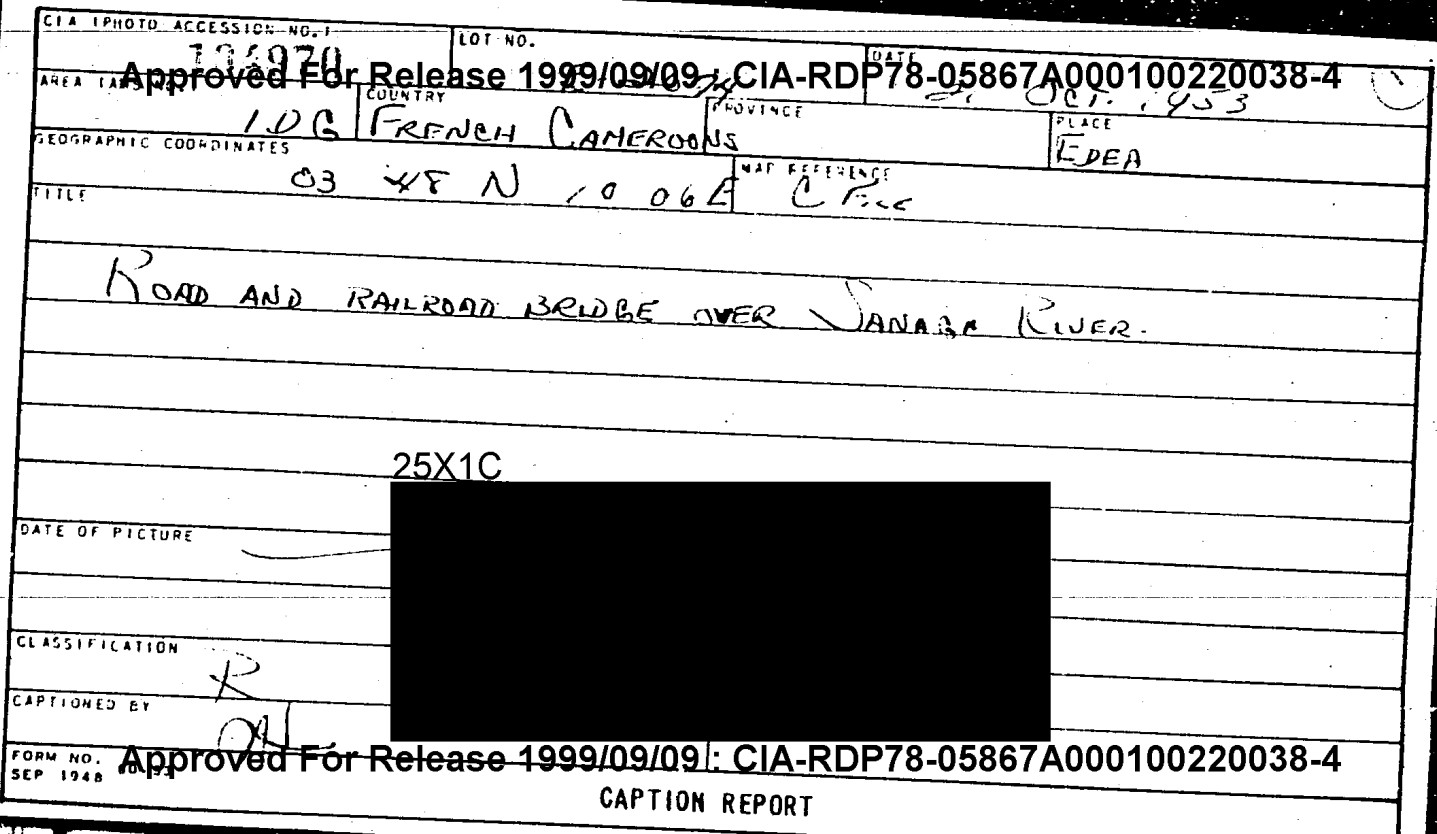 CIA (PHOTO ACCESSION NO.)
LOT NO.
DATE
Approved For Release 1999/09/09 : CIA-RDP78-05867A000100220038-4
OCT. 1953
AREA
COUNTRY
PROVINCE
PLACE
1DG FRENCH CAMEROONS
EDEA
GEOGRAPHIC COORDINATES
MAP REFERENCE
03 48 N 10 06 E
TITLE
ROAD AND RAILROAD BRIDGE OVER SANAGA RIVER.
25X1C
DATE OF PICTURE
CLASSIFICATION
R
CAPTIONED BY
FORM NO.
SEP 1948
Approved For Release 1999/09/09 : CIA-RDP78-05867A000100220038-4
CAPTION REPORT